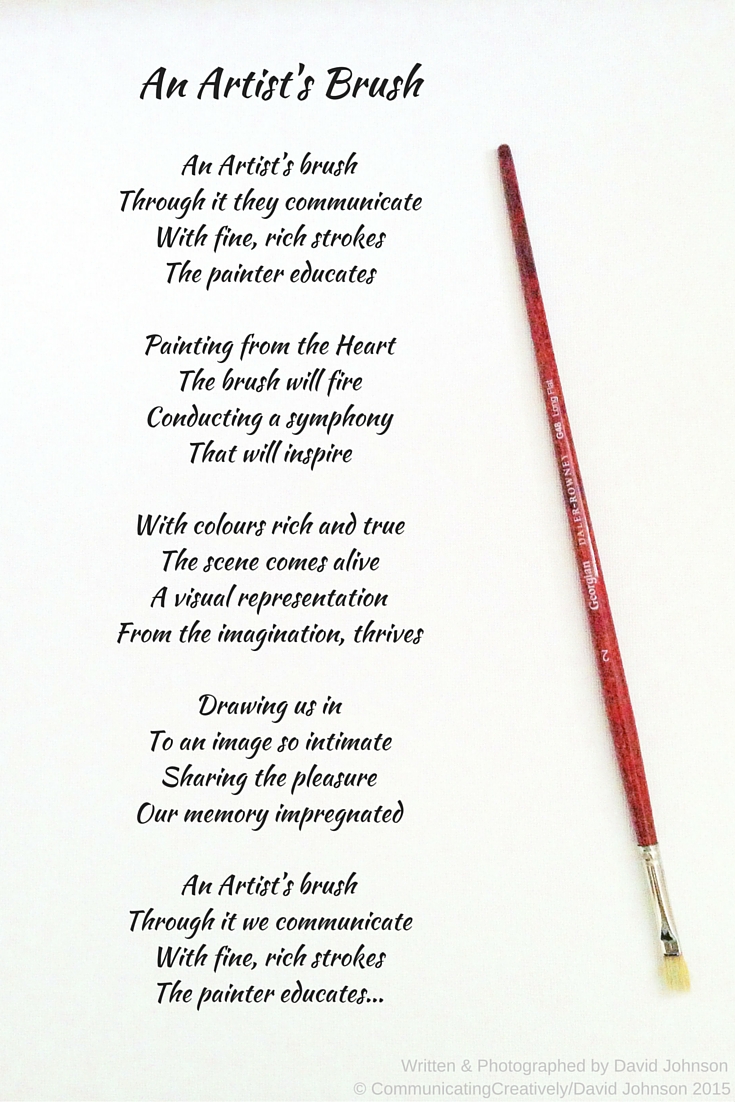 An Artist's Brush
An Artist's brush
Through it they communicate
With fine, rich strokes
The painter educates
Painting from the Heart
The brush will fire
Conducting a symphony
That will inspire
With colours rich and true
The scene comes alive
A visual representation
From the imagination, thrives
Drawing us in
To an image so intimate
Sharing the pleasure
Our memory impregnated
An Artist's brush
Through it we communicate
With fine, rich strokes
The painter educates...
2 Georgian DALER-ROWNEY G48 Long Flat
Written & Photographed by David Johnson
© CommunicatingCreatively/David Johnson 2015